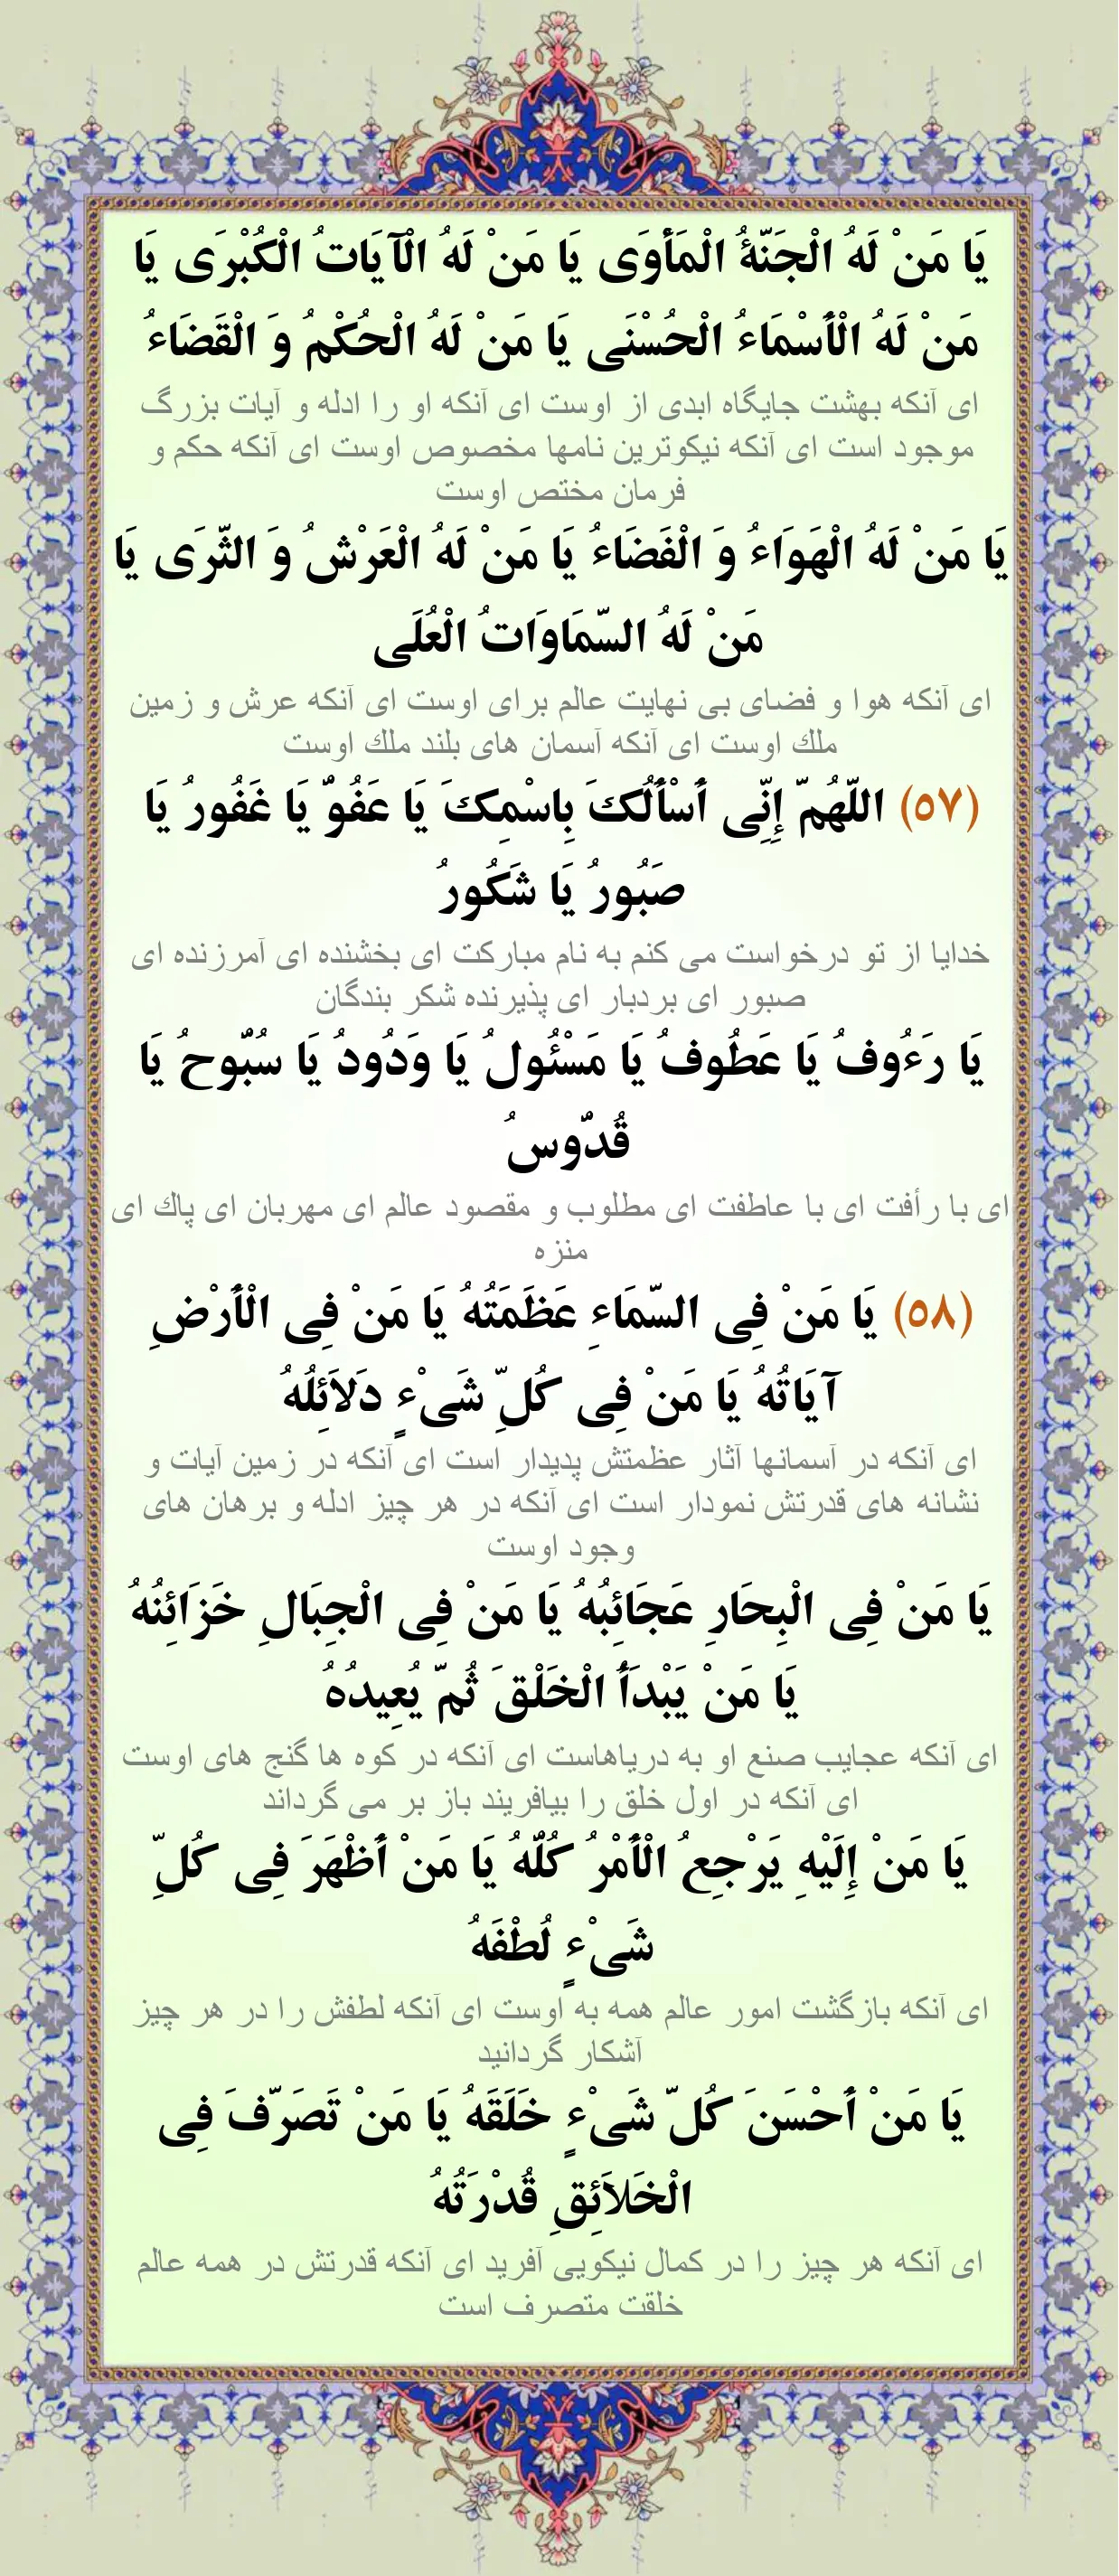 يَا مَنْ لَهُ الْجَنَّةُ الْمَأْوَى يَا مَنْ لَهُ الْآيَاتُ الْكُبْرَى يَا
مَنْ لَهُ الْأَسْمَاءُ الْحُسْنَى يَا مَنْ لَهُ الْحُكْمُ وَ الْقَضَاءُ
ای آنکه بهشت جایگاه ابدی از اوست ای آنکه او را ادله و آیات بزرگ
موجود است ای آنکه نیکوترین نامها مخصوص اوست ای آنکه حکم و
فرمان مختص اوست
يَا مَنْ لَهُ الْهَوَاءُ وَ الْفَضَاءُ يَا مَنْ لَهُ الْعَرْشُ وَ الثَّرَى يَا
مَنْ لَهُ السَّمَاوَاتُ الْعُلَى
ای آنکه هوا و فضای بی نهایت عالم برای اوست ای آنکه عرش و زمین
ملك اوست ای آنکه آسمان های بلند ملك اوست
(۵۷) اللَّهُمَّ إِنِّي أَسْأَلُكَ بِاسْمِكَ يَا عَفُوُّ يَا غَفُورُ يَا
صَبُورُ يَا شَكُورُ
خدایا از تو درخواست می کنم به نام مبارکت ای بخشنده ای آمرزنده ای
صبور ای بردبار ای پذیرنده شکر بندگان
يَا رَءُوفُ يَا عَطُوفُ يَا مَسْئُولُ يَا وَدُودُ يَا سُبُّوحُ يَا
قُدُّوسُ
ای با رأفت ای با عاطفت ای مطلوب و مقصود عالم ای مهربان ای پاك ای
منزه
(۵۸) يَا مَنْ فِي السَّمَاءِ عَظَمَتُهُ يَا مَنْ فِي الْأَرْضِ
آيَاتُهُ يَا مَنْ فِي كُلِّ شَيْءٍ دَلاَئِلُهُ
ای آنکه در آسمانها آثار عظمتش پدیدار است ای آنکه در زمین آیات و
نشانه های قدرتش نمودار است ای آنکه در هر چیز ادله و برهان های
وجود اوست
يَا مَنْ فِي الْبِحَارِ عَجَائِبُهُ يَا مَنْ فِي الْجِبَالِ خَزَائِنُهُ
يَا مَنْ يَبْدَأُ الْخَلْقَ ثُمَّ يُعِيدُهُ
ای آنکه عجایب صنع او به دریاهاست ای آنکه در کوه ها گنج های اوست
ای آنکه در اول خلق را بیافریند باز بر می گرداند
يَا مَنْ إِلَيْهِ يَرْجِعُ الْأَمْرُ كُلُّهُ يَا مَنْ أَظْهَرَ فِي كُلِّ
شَيْءٍ لُطْفَهُ
ای آنکه بازگشت امور عالم همه به اوست ای آنکه لطفش را در هر چیز
آشکار گردانید
يَا مَنْ أَحْسَنَ كُلَّ شَيْءٍ خَلَقَهُ يَا مَنْ تَصَرَّفَ فِي
الْخَلاَئِقِ قُدْرَتُهُ
ای آنکه هر چیز را در کمال نیکویی آفرید ای آنکه قدرتش در همه عالم
خلقت متصرف است